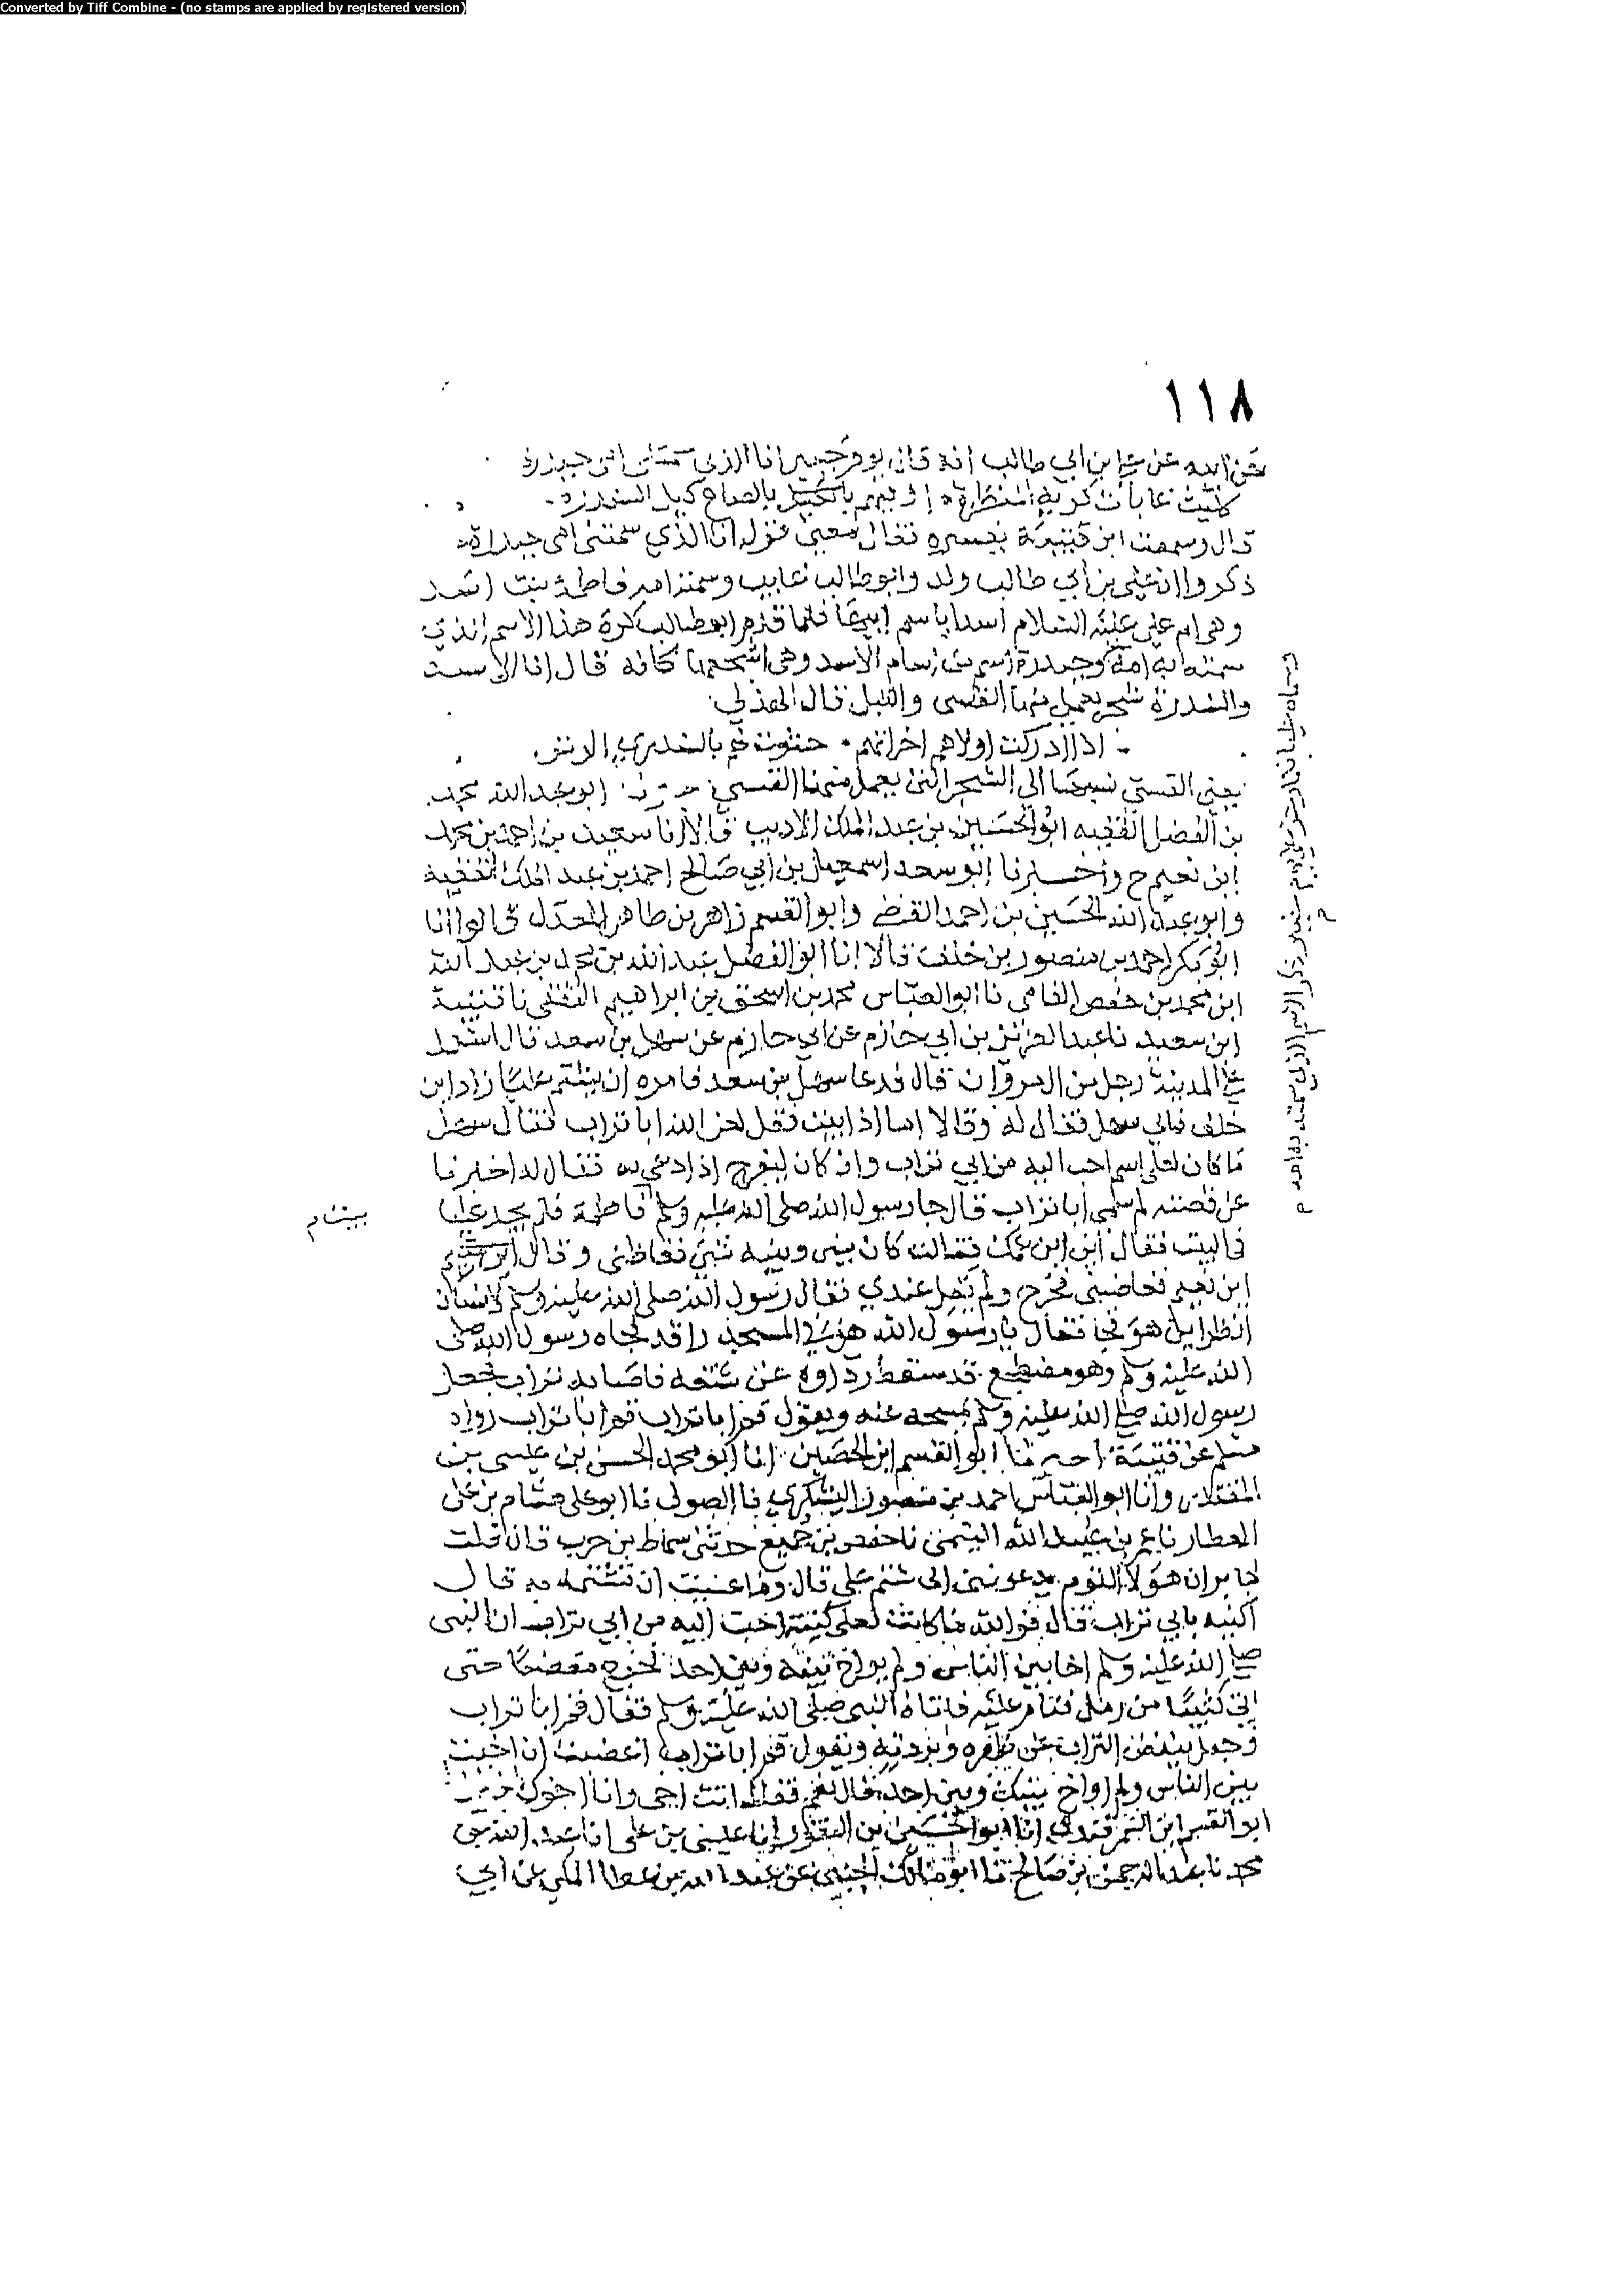 Converted by Tiff Combine - (no stamps are applied by registered version)
١١٨
عن ابيه عن علي ابن ابي طالب انه قال يوم خيبر انا الذي سمتني امي حيدرة
كليث غابات كريه المنظرة اوفيهم بالكيل بالصاع كيل السندرة
قال وسمعت ابن قتيبة يفسره فقال معنى قوله انا الذي سمتني امي حيدرة
ذكروا ان علي بن ابي طالب ولد وابو طالب غايب وسمته امه فاطمة بنت اسد
وهي ام علي عليه السلام اسدا باسم ابيها فلما قدم ابو طالب كره هذا الاسم الذي
سمته به امه وحيدرة اسم من اسام الاسد وهي اشجعها كانه قال انا الاسد
والسندرة شجر يعمل منها القسي والنبل قال الهذلي
اذا ادركت اولاهم اخراتهم حنوت لهم بالسندري الموتر
يعني القسي نسبها الى الشجر التي يعمل منها القسي ابو عبد الله محمد
بن الفضل الفقيه ابو الحسين بن عبد الملك الاديب قالا انا سعيد بن احمد بن محمد
ابن نعيم ح واخبرنا ابو سعد اسمعيل بن ابي صالح احمد بن عبد الملك الفقيه
وابو عبد الله الحسين بن احمد وابو القسم زاهر بن طاهر المعدل قالوا انا
ابو بكر احمد بن منصور بن خلف قالا انا ابو الفضل عبد الله بن محمد بن عبد الله
ابن محمد بن حفص الفامي نا ابو العباس محمد بن اسحق بن ابراهيم الثقفي نا قتيبة
ابن سعيد نا عبد العزيز بن ابي حازم عن ابي حازم عن سهل بن سعد قال استعمل
على المدينة رجل من ال مروان قال فدعا سهل بن سعد فامره ان يشتم عليا زاد ابن
خلف فابى سهل فقال له وقالا اما اذ ابيت فقل لعن الله ابا تراب فقال سهل
ما كان لعلي اسم احب اليه من ابي تراب وان كان ليفرح اذا دعي به فقال له اخبرنا
عن قصته لم سمي ابا تراب قال جا رسول الله صلى الله عليه وسلم فاطمة فلم يجد عليا
بيت م
في البيت فقال اين ابن عمك فقالت كان بيني وبينه شي فغاظني وقال
ابن نعيم فغاضبني فخرج ولم يقل عندي فقال رسول الله صلى الله عليه وسلم لانسان
انظر اين هو فجا فقال يا رسول الله هو في المسجد راقد فجاه رسول الله صلى
الله عليه وسلم وهو مضطجع قد سقط رداوه عن شقه فاصابه تراب فجعل
رسول الله صلى الله عليه وسلم يمسحه عنه ويقول قم ابا تراب قم ابا تراب رواه
مسلم عن قتيبة اخبرنا ابو القسم ابن الحصين انا ابو محمد الحسن بن عيسى بن
المقتدر وانا ابو العباس احمد بن منصور اليشكري نا الصولي نا ابو علي هشام بن علي
العطار نا عمر بن عبيد الله التيمي نا حفص بن جميع حدثني سماك بن حرب قال قلت
لجابر ان هولا القوم يدعونني الى شتم علي قال وما عسيت ان تشتمه به قال
اكنيه بابي تراب قال فوالله ما كانت لعلي كنية احب اليه من ابي تراب ان النبي
صلى الله عليه وسلم اخا بين الناس ولم يواخ بينه وبين احد فخرج مغضبا حتى
اتى كثيبا من رمل فنام عليه فاتاه النبي صلى الله عليه وسلم فقال قم ابا تراب
وجعل ينفض التراب عن ظهره وبردته ويقول قم ابا تراب اغضبت ان اخيت
بين الناس ولم اواخ بينك وبين احد قال نعم فقال انت اخي وانا اخوك
ابو القسم ابن السمرقندي انا ابو الحسين بن النقور انا عيسى بن علي انا عبد الله بن
محمد نا عبد الرحمن بن صالح نا ابو مالك الجنبي عن عبد الله بن عطا المكي عن ابي